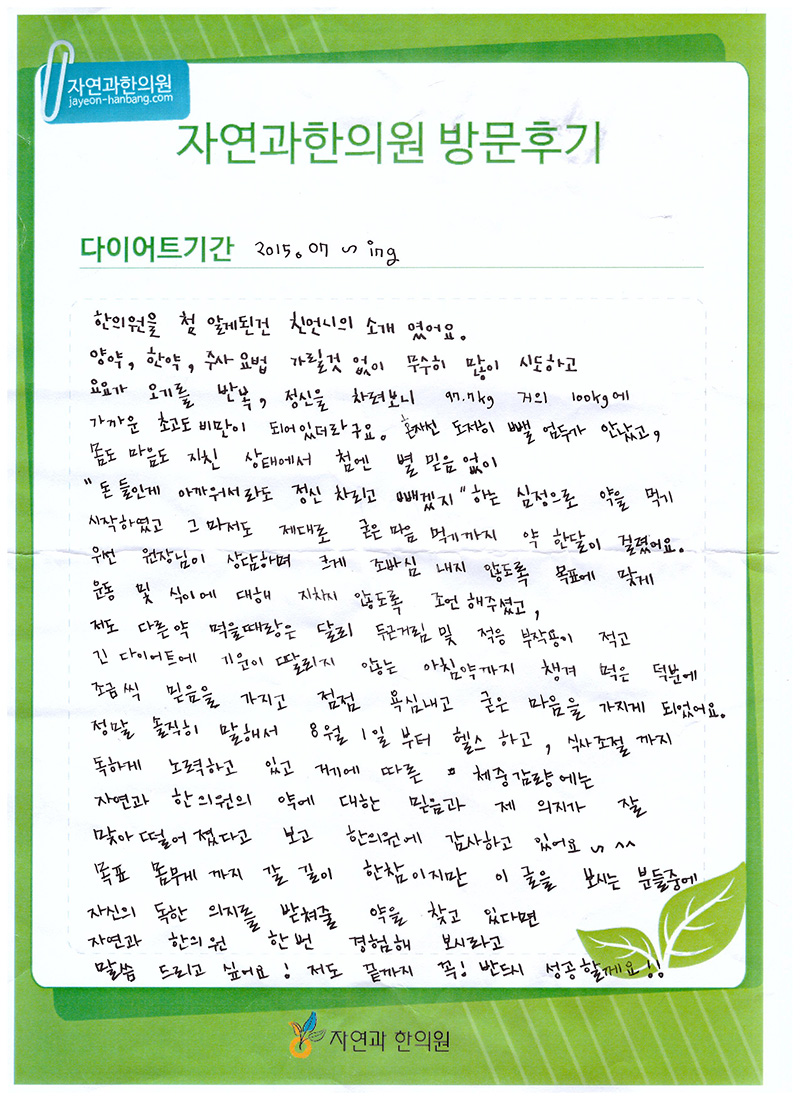 자연과한의원
jayeon-hanbang.com
자연과한의원 방문후기
다이어트기간 2015.07 ~ ing
한의원을 첨 알게된건 친언니의 소개 였어요.
양약, 한약, 주사요법 가릴것 없이 무수히 많이 시도하고
요요가 오기를 반복, 정신을 차려보니 97.7kg 거의 100kg에
가까운 초고도비만이 되어있더라구요. 혼자선 도저히 뺄 엄두가 안났고,
몸도 마음도 지친 상태에서 첨엔 별 믿음 없이
"돈 들인게 아까워서라도 정신 차리고 빼겠지" 하는 심정으로 약을 먹기
시작하였고 그 마저도 제대로 굳은 마음 먹기까지 약 한달이 걸렸어요.
우선 원장님이 상담하며 크게 조바심 내지 않도록 목표에 맞게
운동 및 식이에 대해 지치지 않도록 조언 해주셨고,
저도 다른약 먹을때랑은 달리 두근거림 및 적응 부작용이 적고
긴 다이어트에 기운이 딸리지 않는 아침약까지 챙겨 먹은 덕분에
조금씩 믿음을 가지고 점점 욕심내고 굳은 마음을 가지게 되었어요.
정말 솔직히 말해서 8월 1일 부터 헬스 하고, 식사조절 까지
독하게 노력하고 있고 거기에 따른 체중감량에는
자연과 한의원의 약에 대한 믿음과 제 의지가 잘
맞아 떨어졌다고 보고 한의원에 감사하고 있어요~^^
목표 몸무게 까지 갈 길이 한참이지만 이 글을 보시는 분들중에
자신의 독한 의지를 받쳐줄 약을 찾고 있다면
자연과 한의원 한번 경험해 보시라고
말씀 드리고 싶어요! 저도 끝까지 꼭! 반드시 성공할께요!!
자연과 한의원